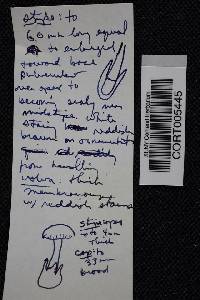 stipe: to
60 mm long equal
to enlarged
toward base
near apex to
becoming scaly near
midstipe. white
staining reddish
brown on ornamentation
from handling
volva, thick
membranous
w/ reddish stains
stipe apex
to 4 mm
thick
cap to
33 mm
broad
CORT005445